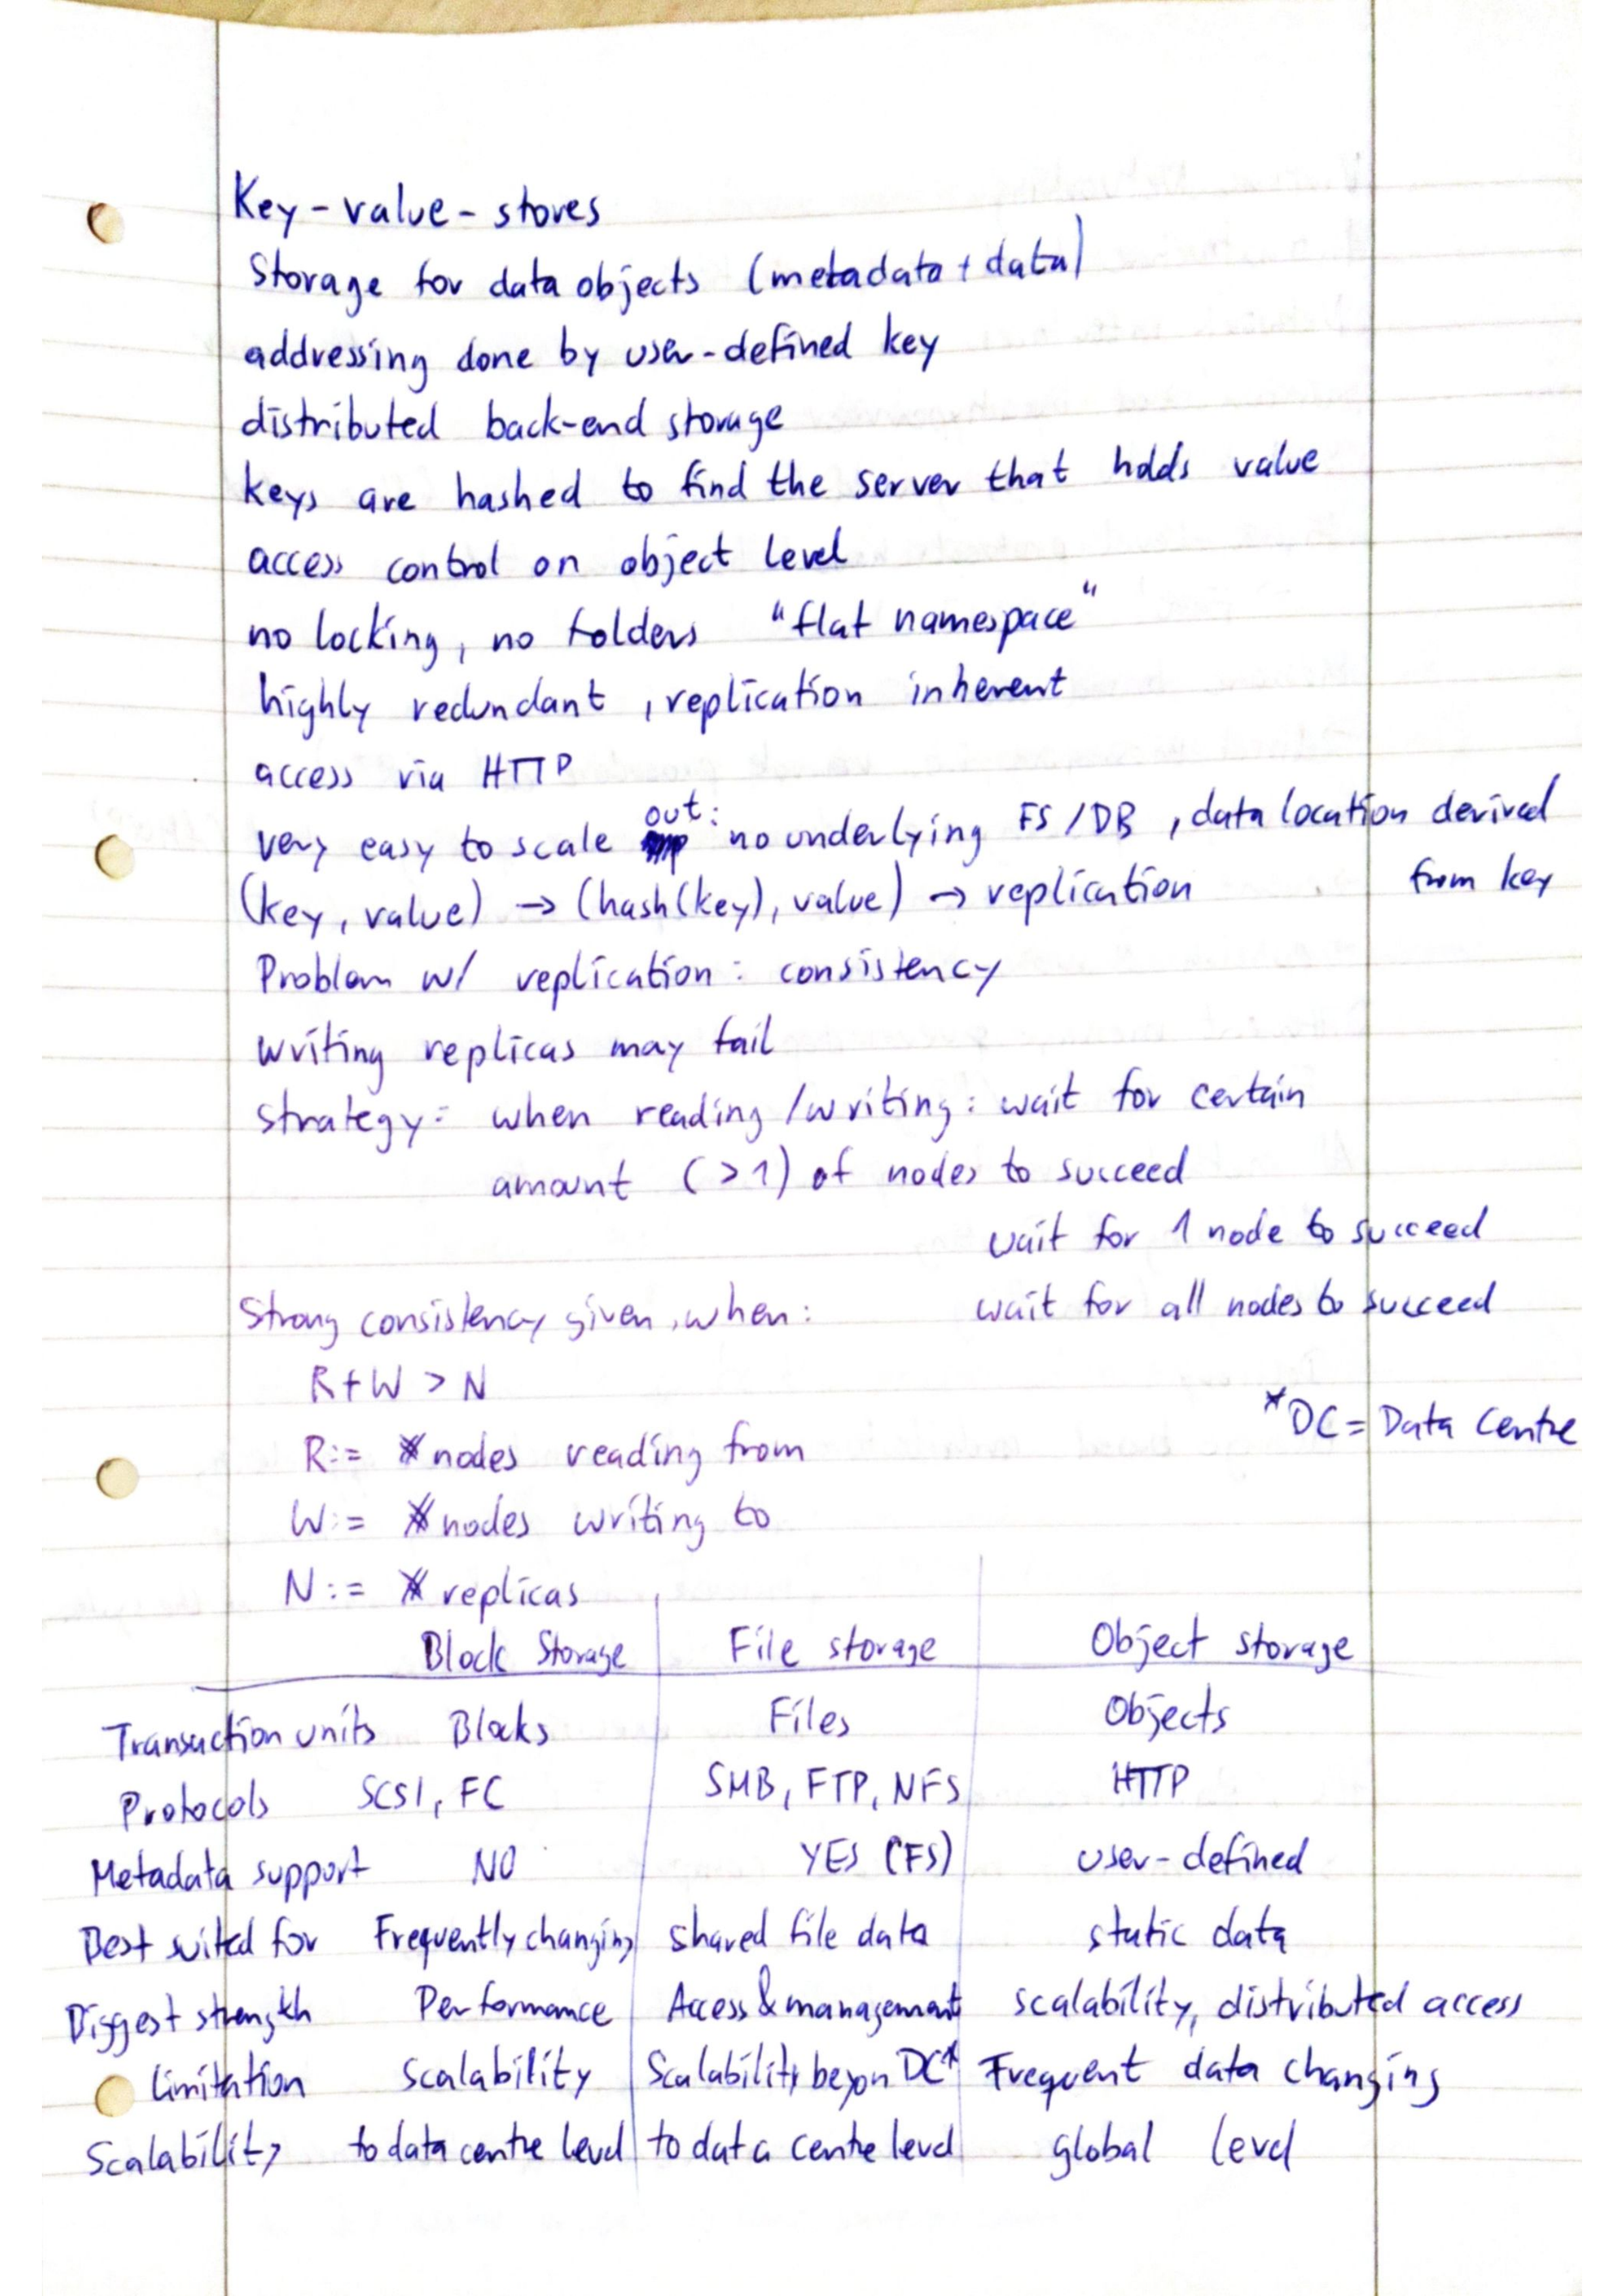 Key-value-stores
Storage for data objects (metadata + data)
addressing done by user-defined key
distributed back-end storage
keys are hashed to find the server that holds value
access control on object level
no locking, no folders "flat namespace"
highly redundant, replication inherent
access via HTTP
very easy to scale out: no underlying FS/DB, data location derived
from key
(key, value) → (hash(key), value) → replication
Problem w/ replication: consistency
writing replicas may fail
strategy: when reading/writing: wait for certain
amount (>1) of nodes to succeed
wait for 1 node to succeed
wait for all nodes to succeed
Strong consistency given, when:
R+W > N
*DC = Data Centre
R:= # nodes reading from
W:= # nodes writing to
N:= # replicas
Block Storage File storage Object storage
Transaction units Blocks Files Objects
Protocols SCSI, FC SMB, FTP, NFS HTTP
Metadata support NO YES (FS) user-defined
Best suited for Frequently changing shared file data static data
Biggest strength Performance Access & management scalability, distributed access
Limitation Scalability Scalability beyon DC* Frequent data changing
Scalability to data centre level to data centre level global level